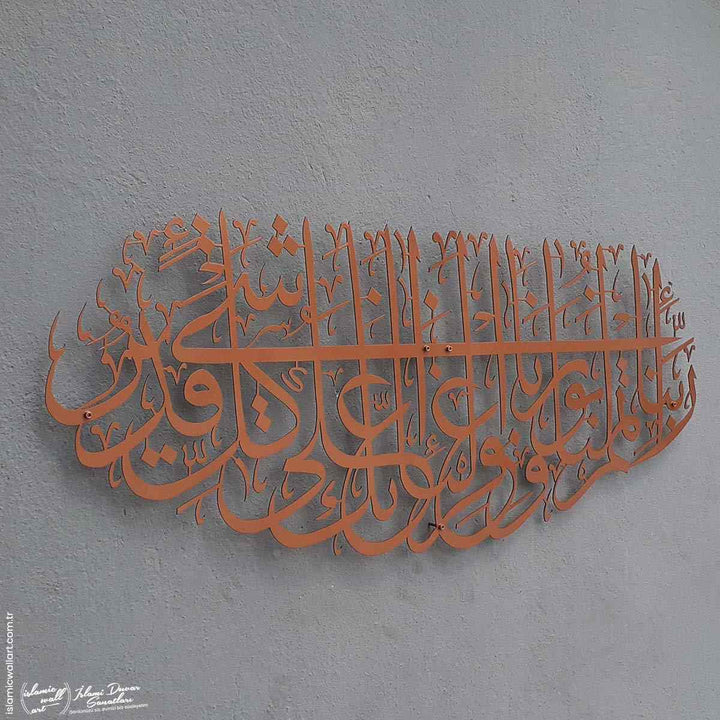 ربنا أتمم لنا نورنا واغفر لنا إنك على كل شيء قدير
islamicwallart.com.tr
islamic wall art
İslami Duvar Sanatları